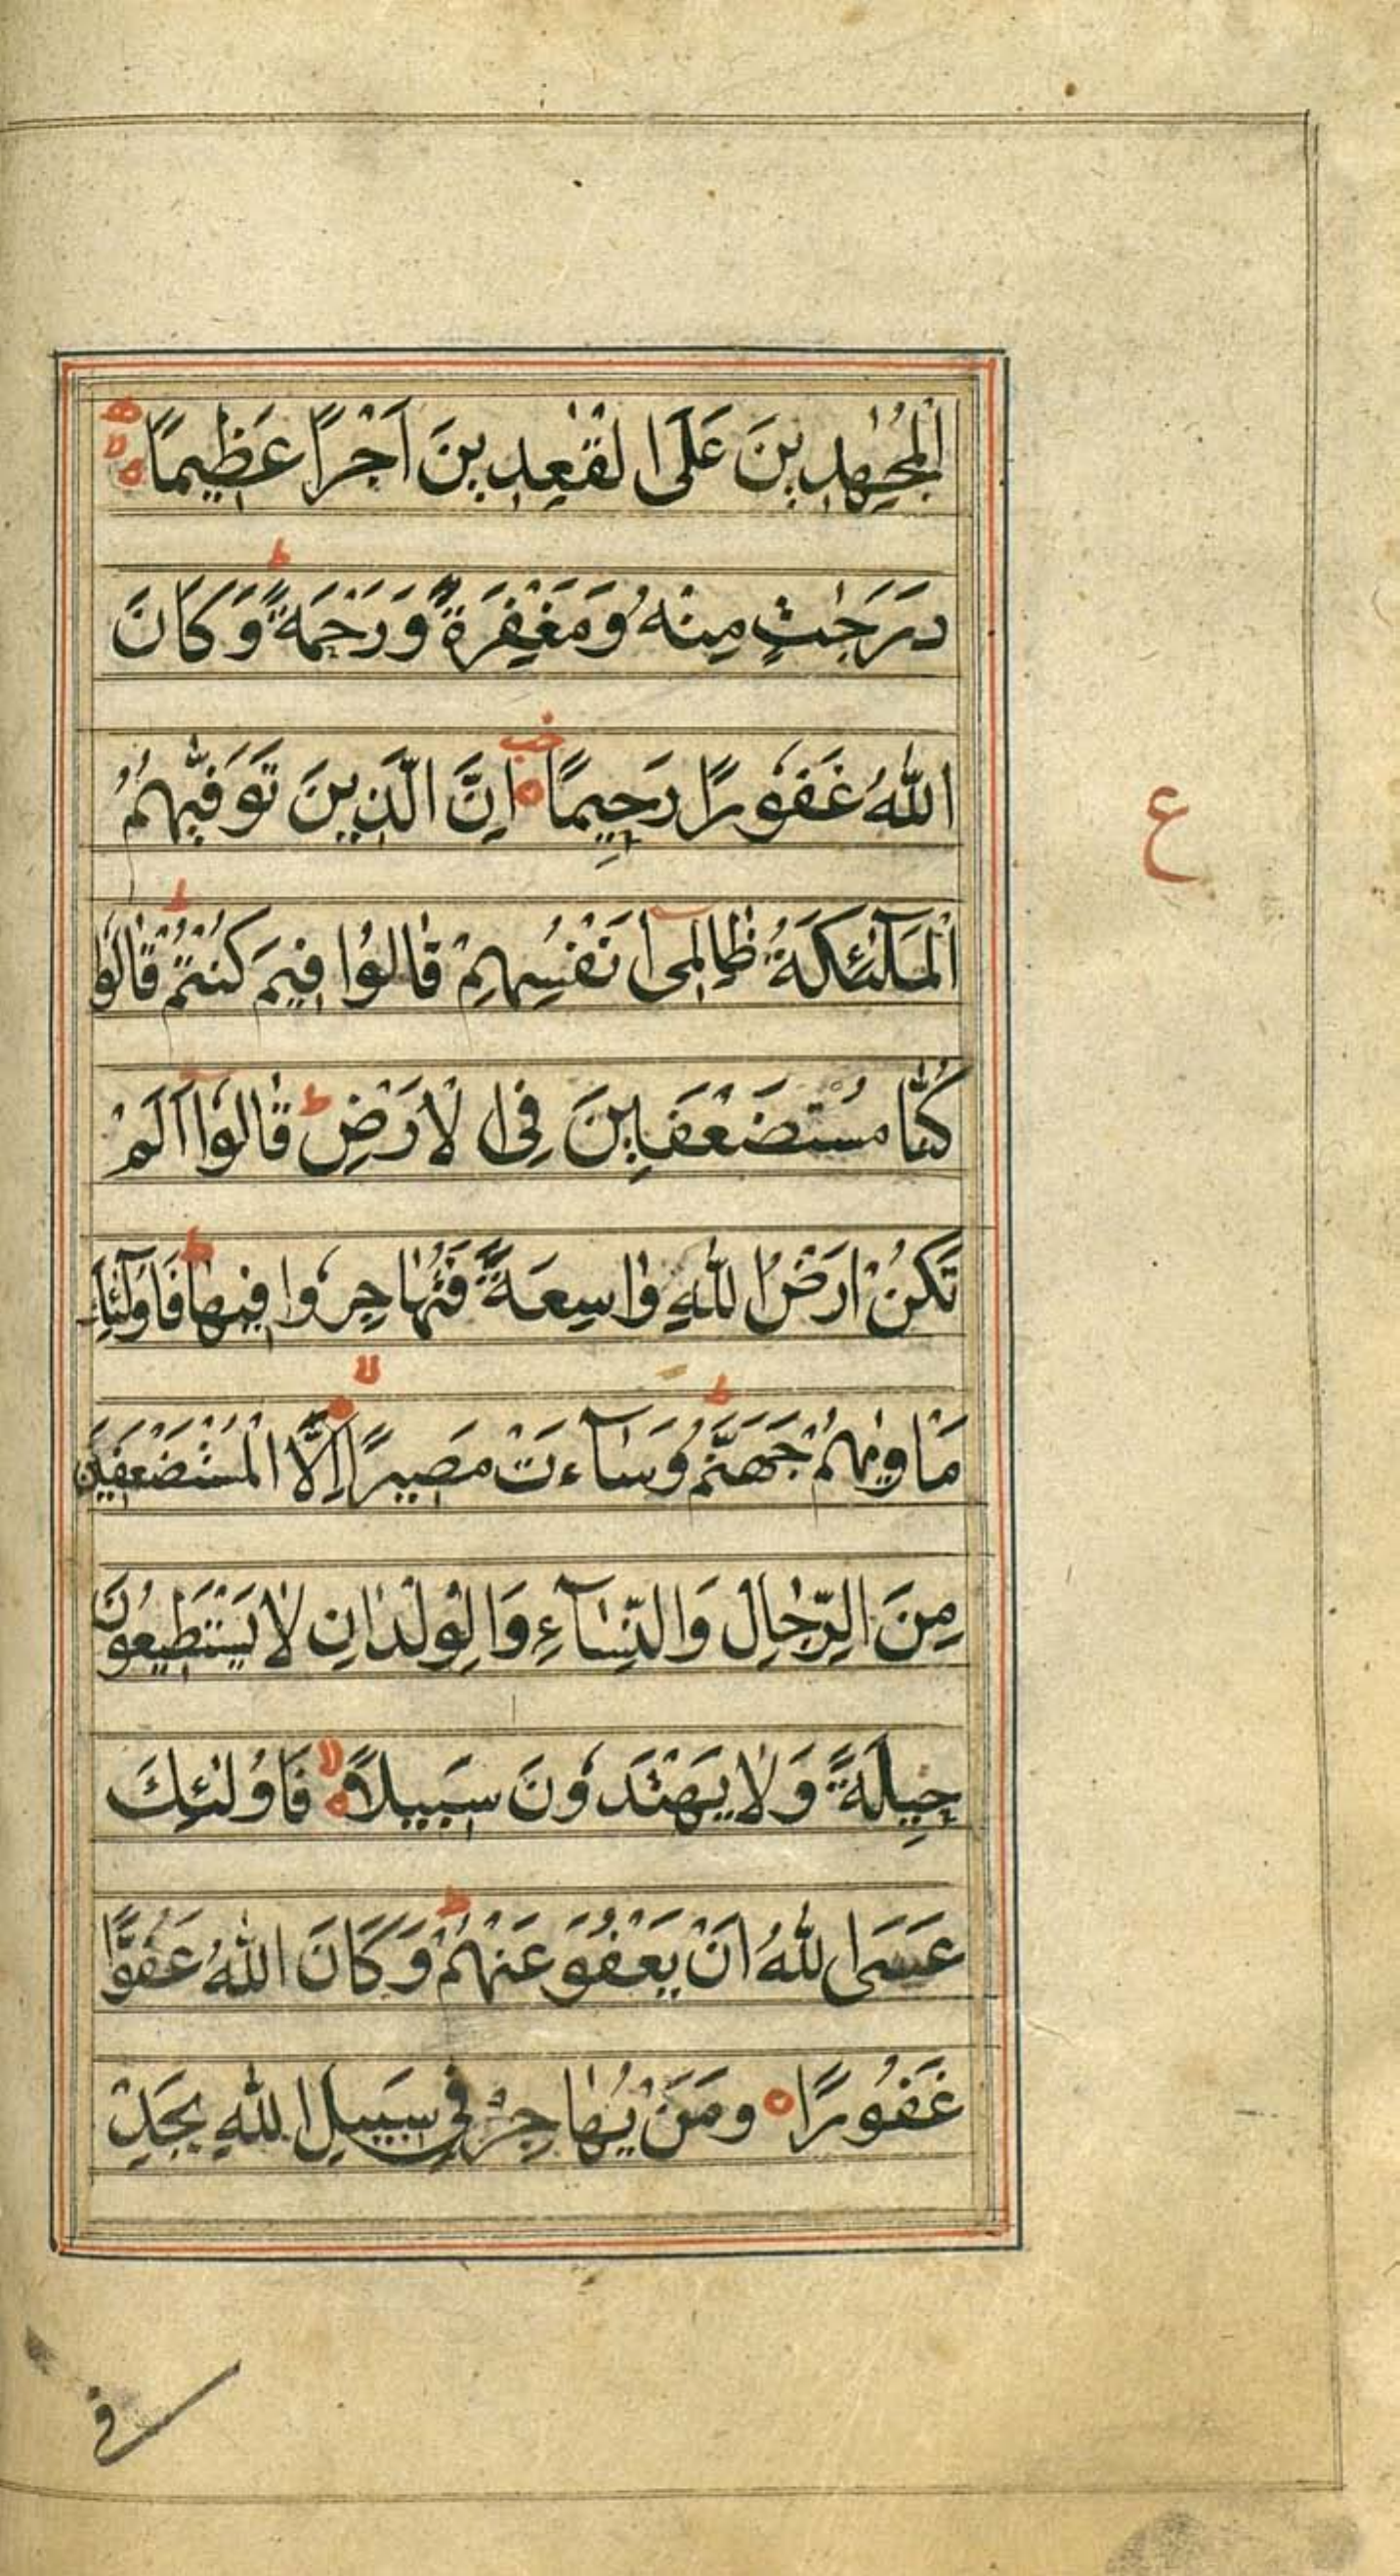 الْمُجٰهِدِينَ عَلَى الْقٰعِدِينَ اَجْرًا عَظِيمًا
دَرَجٰتٍ مِنْهُ وَمَغْفِرَةً وَرَحْمَةً وَكَانَ
اللّٰهُ غَفُورًا رَحِيمًا اِنَّ الَّذِينَ تَوَفّٰىهُمُ
ع
الْمَلٰٓئِكَةُ ظَالِمِىٓ اَنْفُسِهِمْ قَالُوْا فِيمَ كُنْتُمْ قَالُوْا
كُنَّا مُسْتَضْعَفِينَ فِى الْاَرْضِ قَالُوْٓا اَلَمْ
تَكُنْ اَرْضُ اللّٰهِ وَاسِعَةً فَتُهَاجِرُوا فِيهَا فَاُولٰٓئِكَ
مَاْوٰىهُمْ جَهَنَّمُ وَسَآءَتْ مَصِيرًا اِلَّا الْمُسْتَضْعَفِينَ
مِنَ الرِّجَالِ وَالنِّسَآءِ وَالْوِلْدَانِ لَا يَسْتَطِيعُونَ
حِيلَةً وَلَا يَهْتَدُونَ سَبِيلًا فَاُولٰئِكَ
عَسَى اللّٰهُ اَنْ يَعْفُوَ عَنْهُمْ وَكَانَ اللّٰهُ عَفُوًّا
غَفُورًا وَمَنْ يُهَاجِرْ فِى سَبِيلِ اللّٰهِ يَجِدْ
فى